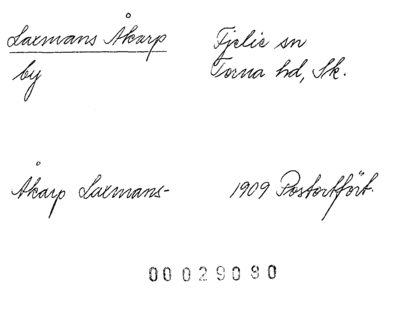 Laxmans Åkarp Fjelie sn
by Torna hd, Sk.
Åkarp Laxmans- 1909 Postortfört.
00029080